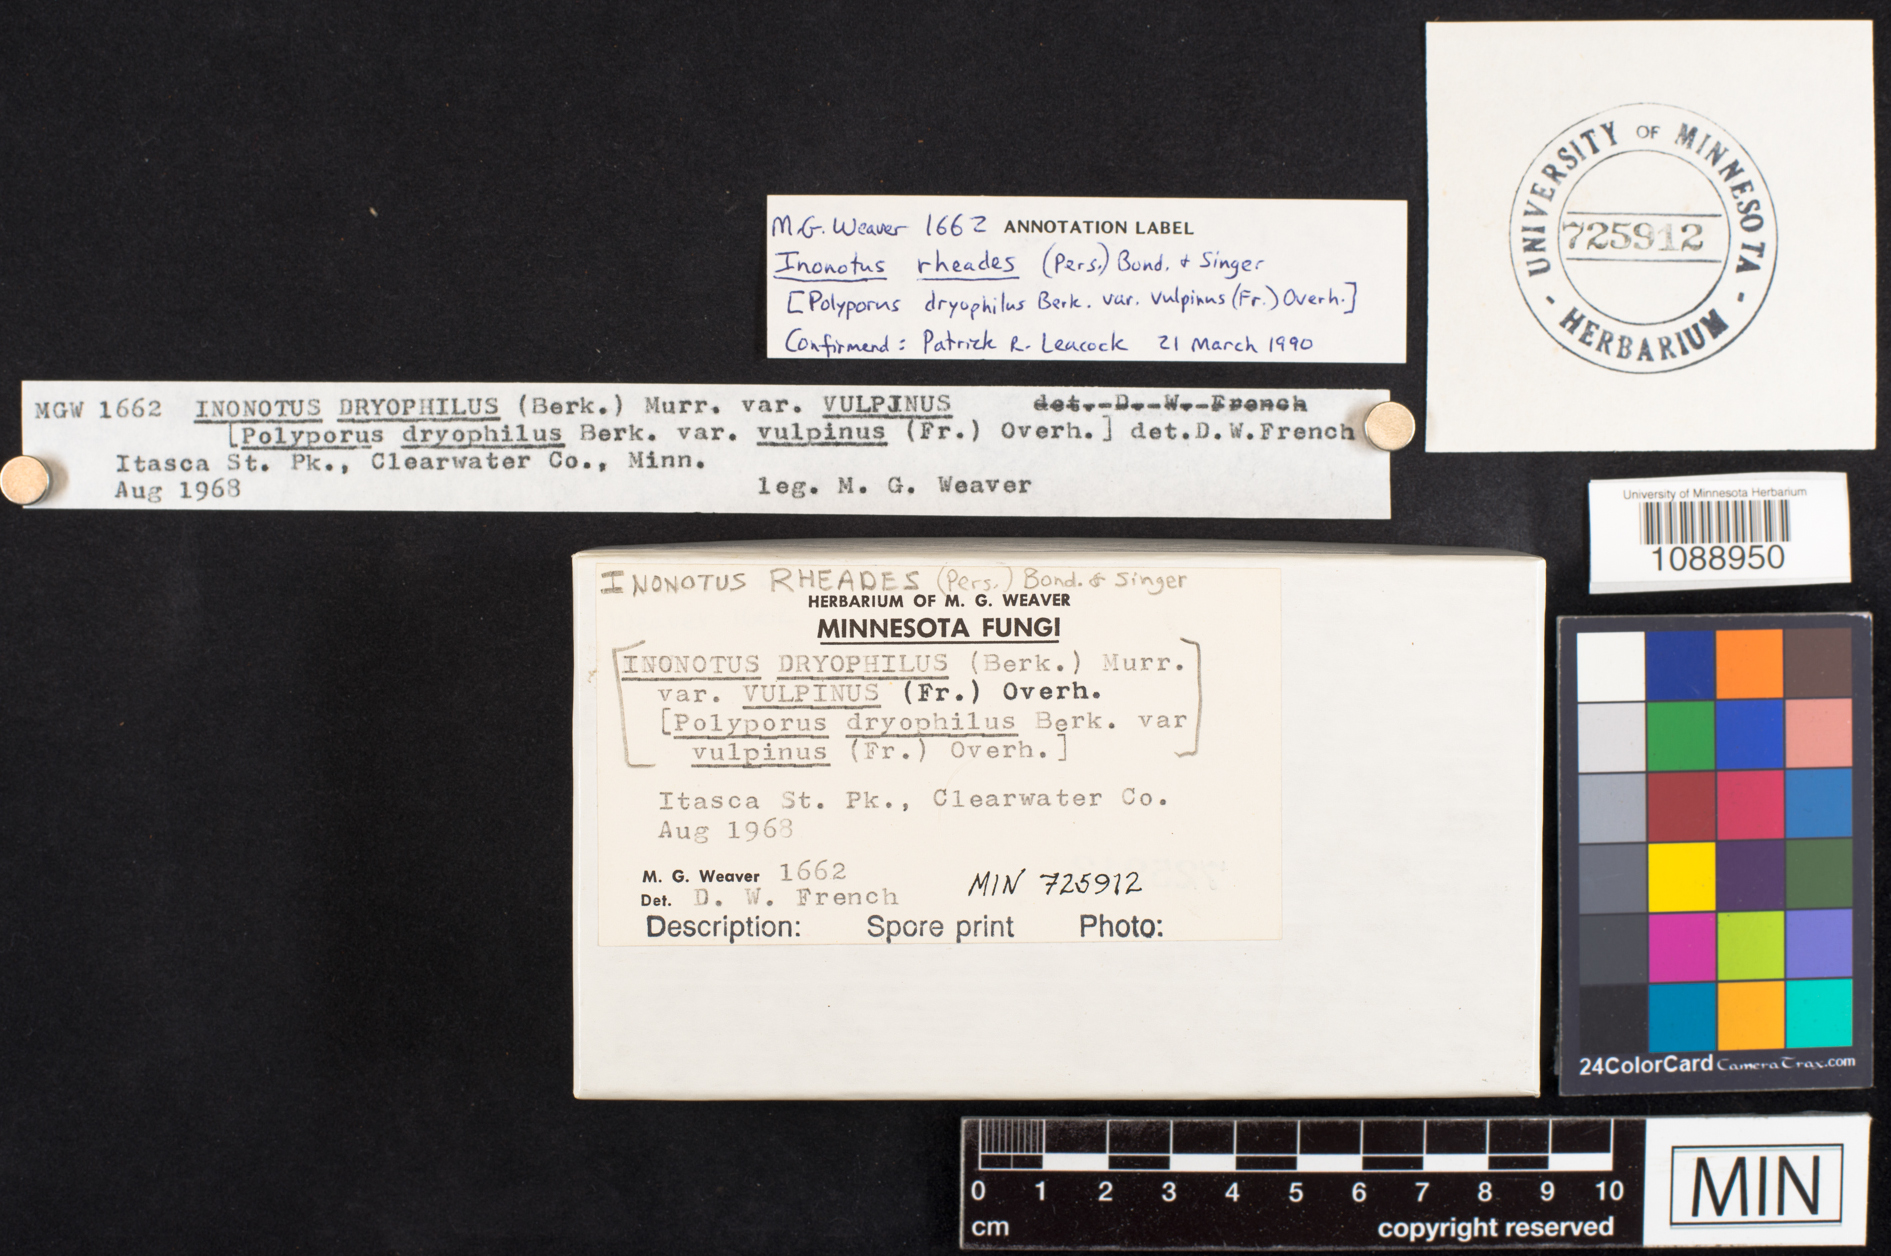 UNIVERSITY OF MINNESOTA
725912
- HERBARIUM -
M.G. Weaver 1662 ANNOTATION LABEL
Inonotus rheades (Pers.) Bond. & Singer
[Polyporus dryophilus Berk. var. vulpinus (Fr.) Overh.]
Confirmend: Patrick R. Leacock 21 March 1990
MGW 1662 INONOTUS DRYOPHILUS (Berk.) Murr. var. VULPINUS det. D. W. French
[Polyporus dryophilus Berk. var. vulpinus (Fr.) Overh.] det.D.W.French
Itasca St. Pk., Clearwater Co., Minn.
Aug 1968 leg. M. G. Weaver
University of Minnesota Herbarium
1088950
INONOTUS RHEADES (Pers.) Bond. & Singer
HERBARIUM OF M. G. WEAVER
MINNESOTA FUNGI
[INONOTUS DRYOPHILUS (Berk.) Murr.
var. VULPINUS (Fr.) Overh.
[Polyporus dryophilus Berk. var
vulpinus (Fr.) Overh.]]
Itasca St. Pk., Clearwater Co.
Aug 1968
M. G. Weaver 1662
Det. D. W. French
MIN 725912
Description: Spore print Photo:
24ColorCard CameraTrax.com
0 1 2 3 4 5 6 7 8 9 10
cm copyright reserved
MIN